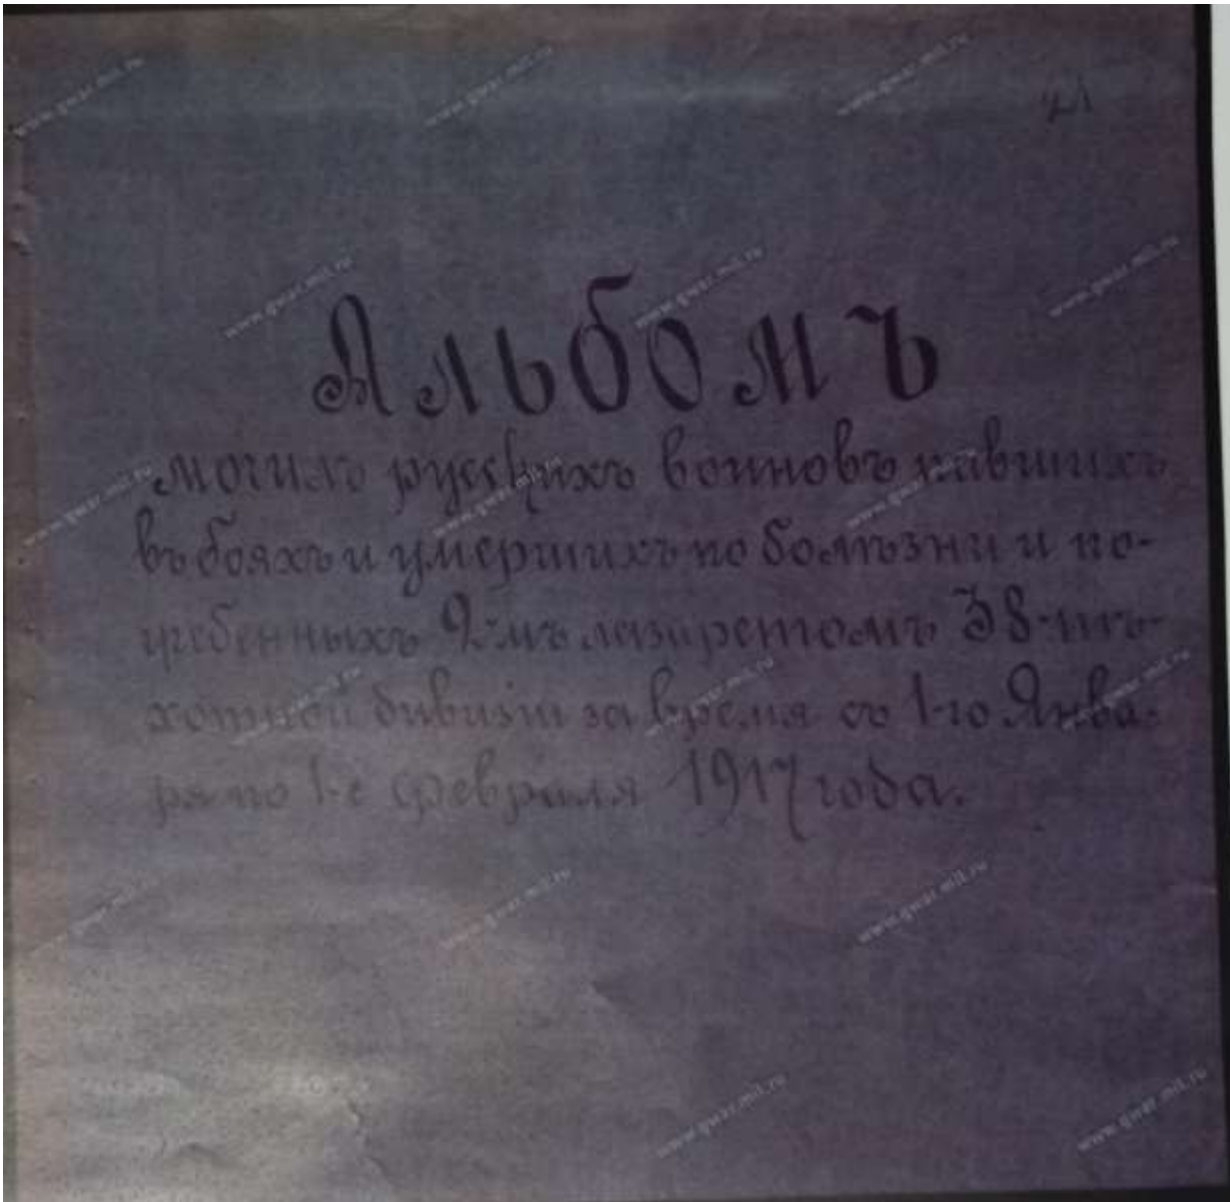 Альбомъ
могилъ русскихъ воиновъ павшихъ
въ бояхъ и умершихъ по болѣзни и по-
гребенныхъ 2-мъ лазаретомъ 38-пѣ-
хотной дивизіи за время съ 1-го Янва-
ря по 1-е февраля 1917 года.